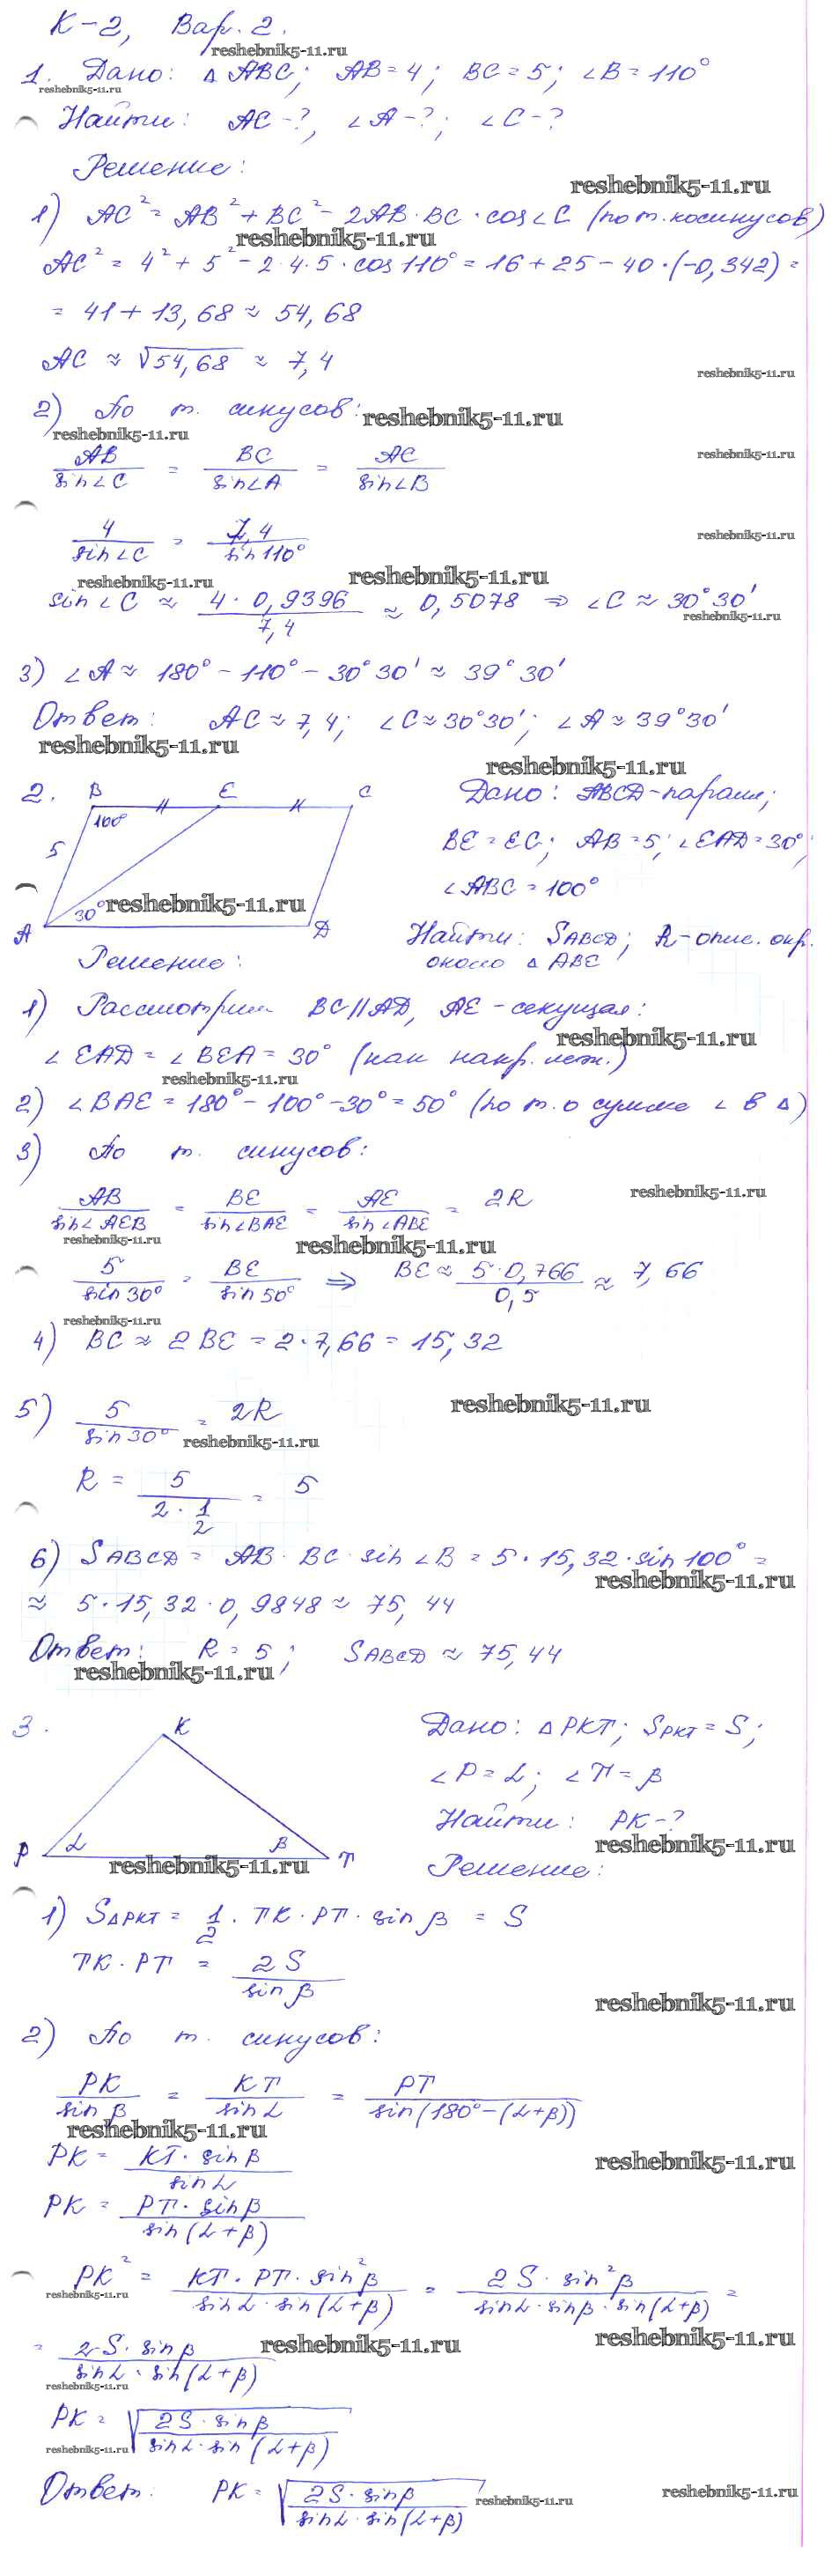 К-2, Вар. 2.
reshebnik5-11.ru
1. Дано: △ ABC; AB = 4; BC = 5; ∠B = 110°
reshebnik5-11.ru
Найти: AC-?, ∠A-?; ∠C-?
Решение:
reshebnik5-11.ru
1) AC² = AB² + BC² - 2AB·BC·cos∠C (по т. косинусов)
reshebnik5-11.ru
AC² = 4² + 5² - 2·4·5·cos110° = 16 + 25 - 40·(-0,342) =
= 41 + 13,68 ≈ 54,68
AC ≈ √54,68 ≈ 7,4
reshebnik5-11.ru
2) По т. синусов:
reshebnik5-11.ru
reshebnik5-11.ru
AB/sin∠C = BC/sin∠A = AC/sin∠B
reshebnik5-11.ru
4/sin∠C = 7,4/sin110°
reshebnik5-11.ru
reshebnik5-11.ru reshebnik5-11.ru
sin∠C ≈ 4·0,9396/7,4 ≈ 0,5078 ⇒ ∠C ≈ 30°30'
reshebnik5-11.ru
3) ∠A ≈ 180° - 110° - 30°30' ≈ 39°30'
Ответ: AC ≈ 7,4; ∠C ≈ 30°30'; ∠A ≈ 39°30'
reshebnik5-11.ru
reshebnik5-11.ru
2. B E C
Дано: ABCD-парал;
100°
5
BE = EC; AB = 5; ∠EAD = 30°;
∠ABC = 100°
30°
reshebnik5-11.ru
A D
Найти: SABCD; R-опис. окр.
около △ ABE
Решение:
1) Рассмотрим BC||AD, AE-секущая:
reshebnik5-11.ru
∠EAD = ∠BEA = 30° (как накр. леж.)
reshebnik5-11.ru
2) ∠BAE = 180° - 100° - 30° = 50° (по т. о сумме ∠ в △)
3) По т. синусов:
reshebnik5-11.ru
AB/sin∠AEB = BE/sin∠BAE = AE/sin∠ABE = 2R
reshebnik5-11.ru reshebnik5-11.ru
5/sin30° = BE/sin50° ⇒ BE ≈ 5·0,766/0,5 ≈ 7,66
reshebnik5-11.ru
4) BC ≈ 2BE = 2·7,66 = 15,32
reshebnik5-11.ru
5) 5/sin30° = 2R
reshebnik5-11.ru
R = 5/2·1/2 = 5
6) SABCD = AB·BC·sin∠B = 5·15,32·sin100° =
reshebnik5-11.ru
≈ 5·15,32·0,9848 ≈ 75,44
Ответ: R = 5; SABCD ≈ 75,44
reshebnik5-11.ru
3. K
Дано: △PKT; SPKT = S;
∠P = α; ∠T = β
Найти: PK-?
reshebnik5-11.ru
P α β T
reshebnik5-11.ru
Решение:
1) S△PKT = 1/2·TK·PT·sinβ = S
TK·PT = 2S/sinβ
reshebnik5-11.ru
2) По т. синусов:
PK/sinβ = KT/sinα = PT/sin(180°-(α+β))
reshebnik5-11.ru
PK = KT·sinβ/sinα
reshebnik5-11.ru
PK = PT·sinβ/sin(α+β)
PK² = KT·PT·sin²β/sinα·sin(α+β) = 2S·sin²β/sinα·sinβ·sin(α+β) =
reshebnik5-11.ru
= 2S·sinβ/sinα·sin(α+β)
reshebnik5-11.ru reshebnik5-11.ru
reshebnik5-11.ru
PK = √2S·sinβ/sinα·sin(α+β)
reshebnik5-11.ru
Ответ: PK = √2S·sinβ/sinα·sin(α+β)
reshebnik5-11.ru reshebnik5-11.ru